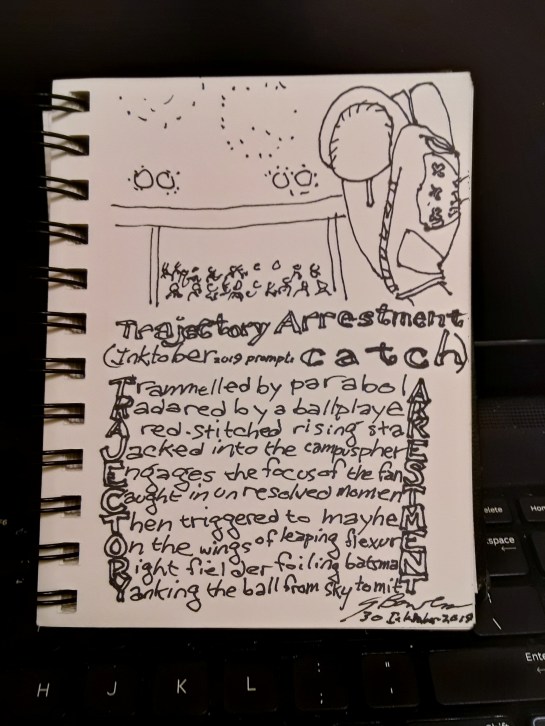 Trajectory Arrestment
(Inktober 2019 prompt: catch)
Trammelled by parabola
Radared by a ballplayer
A red-stitched rising star
Jacked into the campusphere
Engages the focus of the fans
Caught in unresolved moment
Then triggered to mayhem
On the wings of leaping flexure
Right fielder foiling batsman
Yanking the ball from sky to mitt
30 Inktober 2019
elete
Hom
space
Ente
H J K L : ; " '